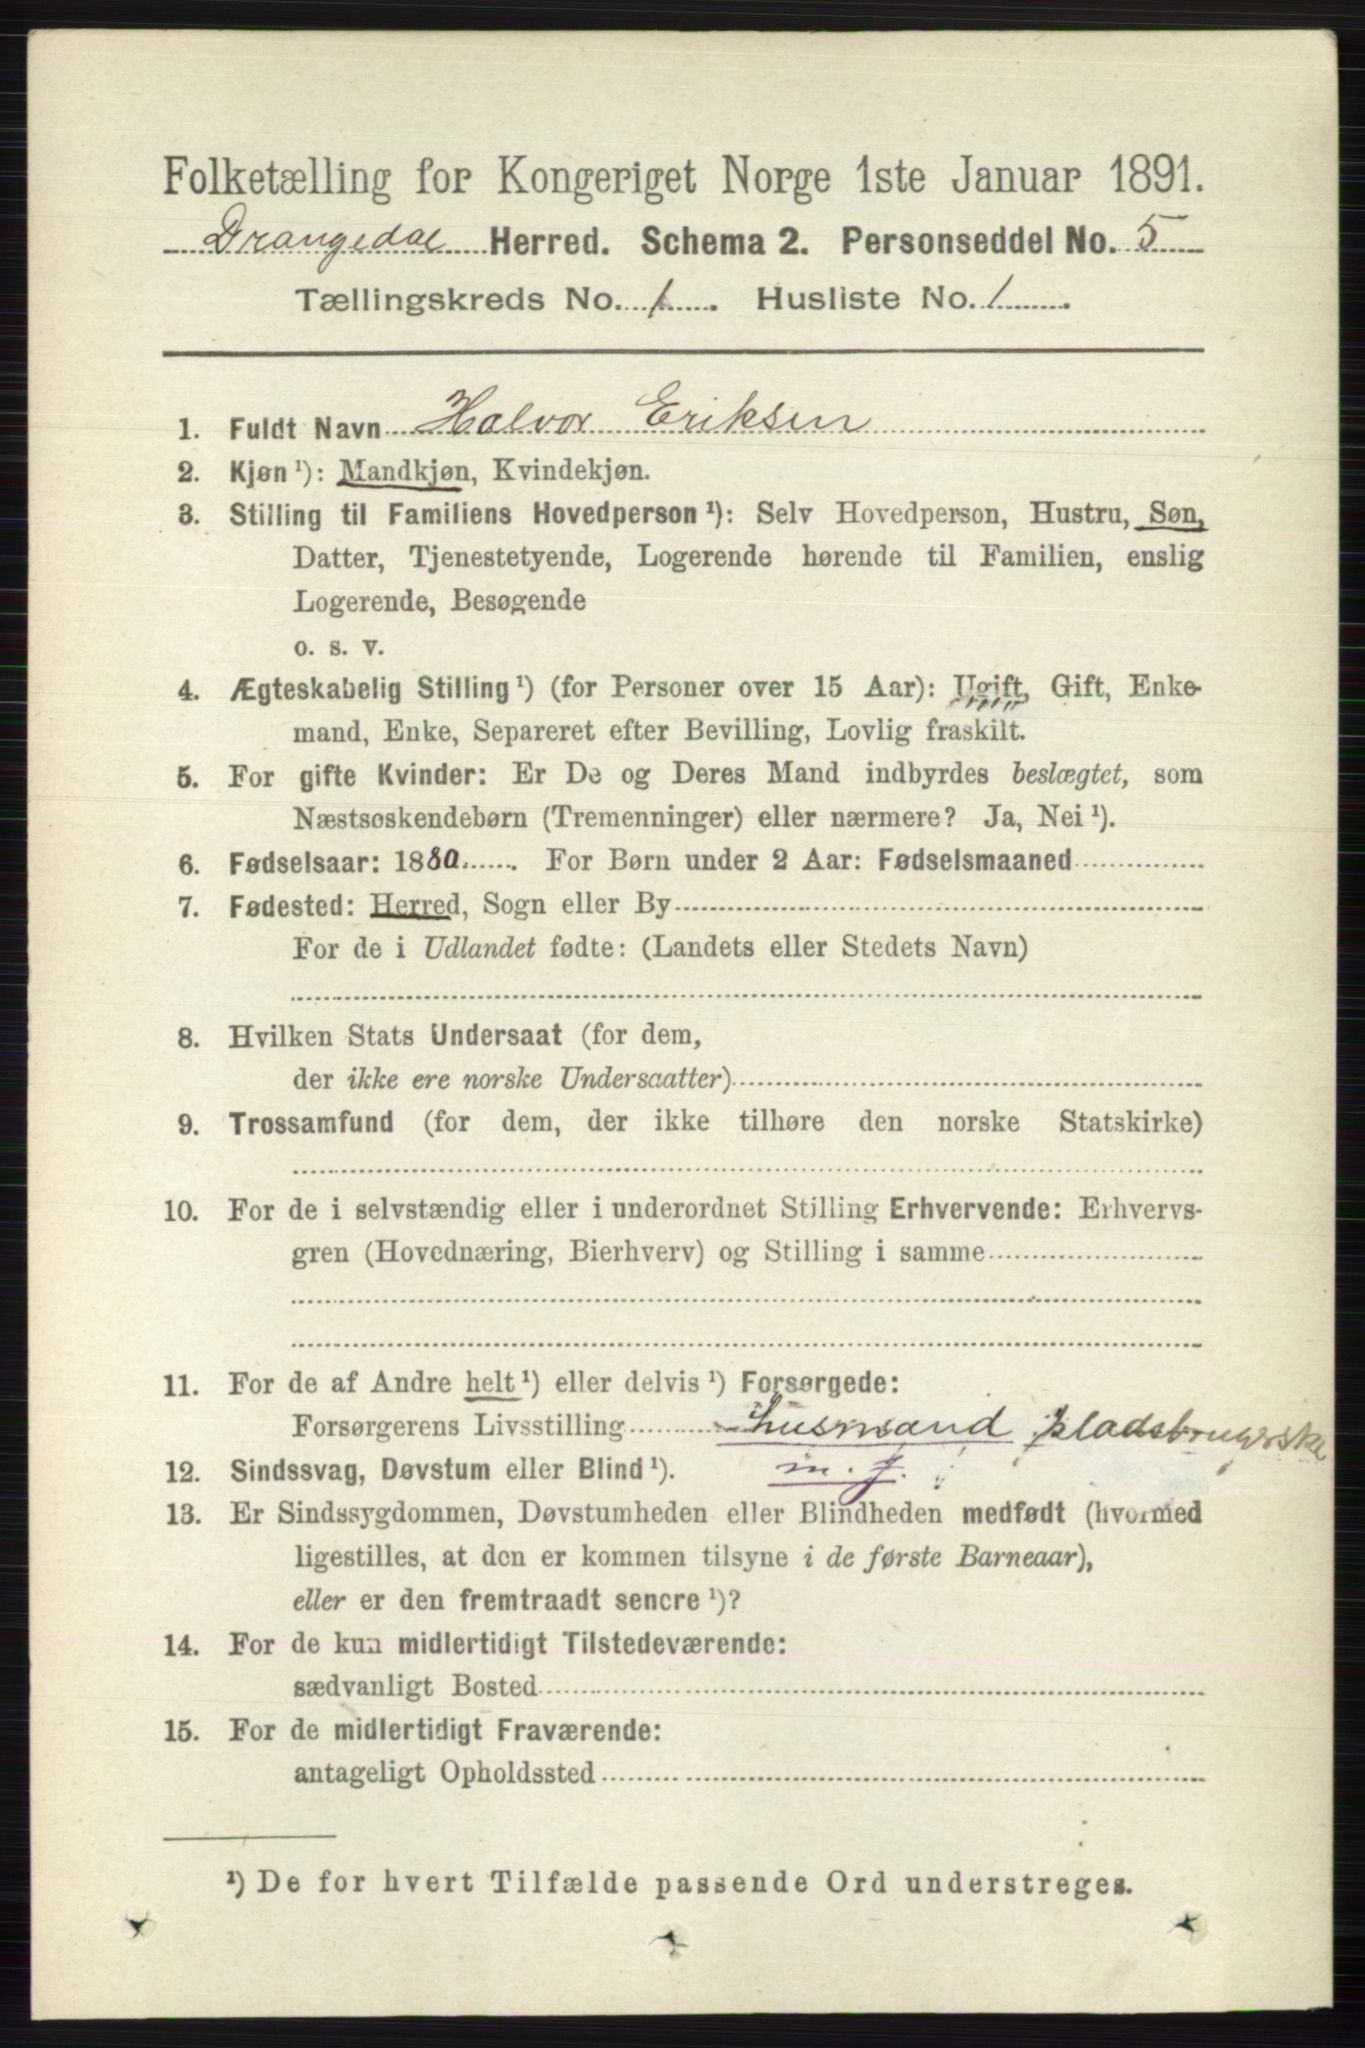 Folketælling for Kongeriget Norge 1ste Januar 1891.
Drangedal Herred. Schema 2. Personseddel No. 5
Tællingskreds No. 1. Husliste No. 1.
1. Fuldt Navn Halvor Eriksen
2. Kjøn ¹): Mandkjøn, Kvindekjøn.
3. Stilling til Familiens Hovedperson ¹): Selv Hovedperson, Hustru, Søn,
Datter, Tjenestetyende, Logerende hørende til Familien, enslig
Logerende, Besøgende
o. s. v.
4. Ægteskabelig Stilling ¹) (for Personer over 15 Aar): Ugift, Gift, Enke-
mand, Enke, Separeret efter Bevilling, Lovlig fraskilt.
5. For gifte Kvinder: Er De og Deres Mand indbyrdes beslægtet, som
Næstsøskendebørn (Tremenninger) eller nærmere? Ja, Nei ¹).
6. Fødselsaar: 1880. For Børn under 2 Aar: Fødselsmaaned
7. Fødested: Herred, Sogn eller By
For de i Udlandet fødte: (Landets eller Stedets Navn)
8. Hvilken Stats Undersaat (for dem,
der ikke ere norske Undersaatter)
9. Trossamfund (for dem, der ikke tilhøre den norske Statskirke)
10. For de i selvstændig eller i underordnet Stilling Erhvervende: Erhvervs-
gren (Hovednæring, Bierhverv) og Stilling i samme
11. For de af Andre helt ¹) eller delvis ¹) Forsørgede:
Forsørgerens Livsstilling husmand pladsbrugerske
12. Sindssvag, Døvstum eller Blind ¹). m. j.
13. Er Sindssygdommen, Døvstumheden eller Blindheden medfødt (hvormed
ligestilles, at den er kommen tilsyne i de første Barneaar),
eller er den fremtraadt senere ¹)?
14. For de kun midlertidigt Tilstedeværende:
sædvanligt Bosted
15. For de midlertidigt Fraværende:
antageligt Opholdssted
¹) De for hvert Tilfælde passende Ord understreges.